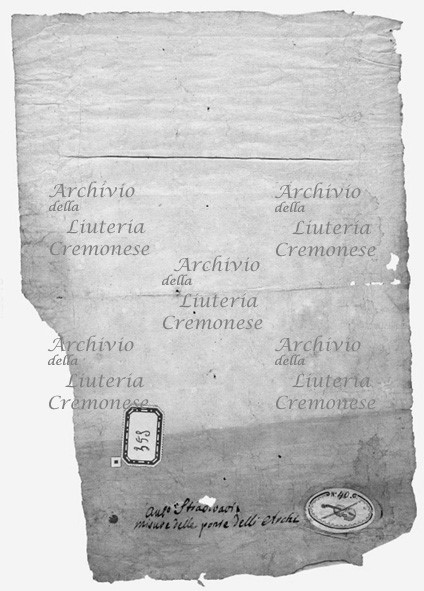 Archivio
della
Liuteria
Cremonese
Archivio
della
Liuteria
Cremonese
Archivio
della
Liuteria
Cremonese
Archivio
della
Liuteria
Cremonese
Archivio
della
Liuteria
Cremonese
393
40
Stradivari
misure delle ponte delli Archi